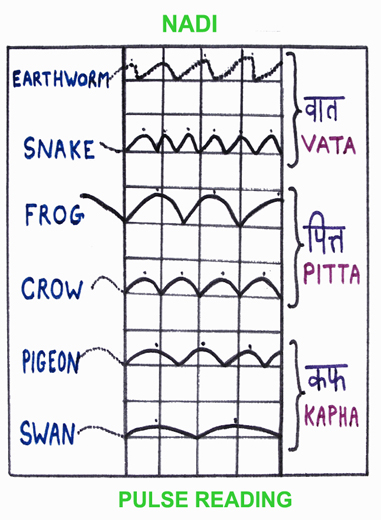 NADI
EARTHWORM
SNAKE
वात
VATA
FROG
CROW
पित्त
PITTA
PIGEON
SWAN
कफ
KAPHA
PULSE READING